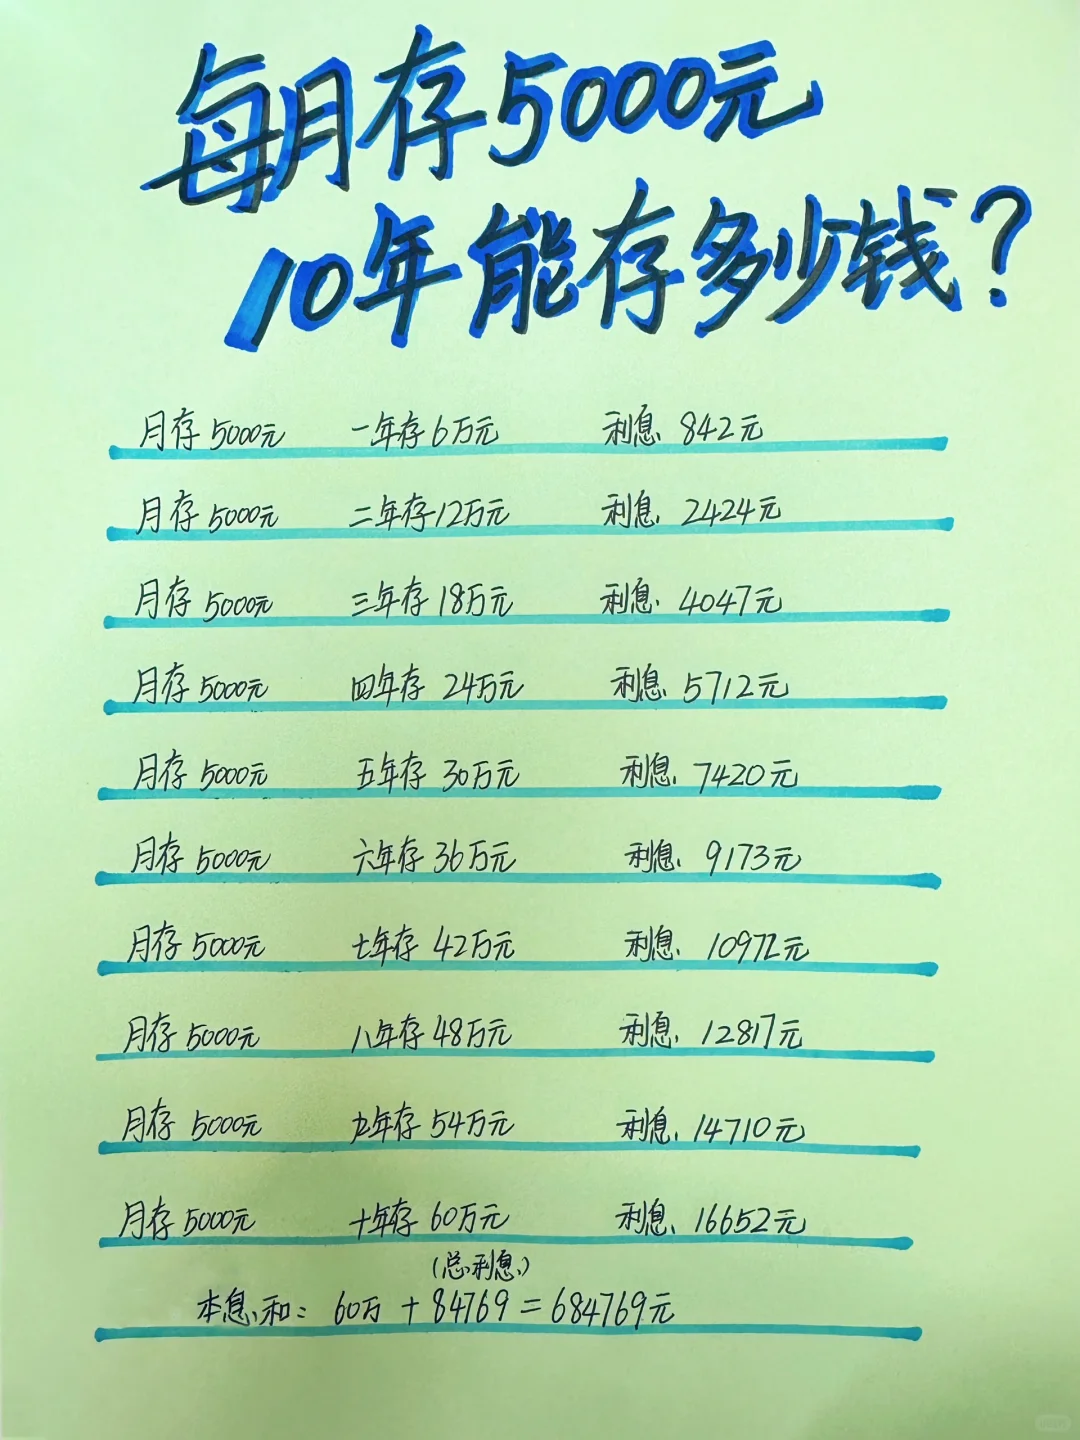 每月存5000元
10年能存多少钱?
月存5000元 一年存6万元 利息842元
月存5000元 二年存12万元 利息2424元
月存5000元 三年存18万元 利息4047元
月存5000元 四年存24万元 利息5712元
月存5000元 五年存30万元 利息7420元
月存5000元 六年存36万元 利息9173元
月存5000元 七年存42万元 利息10972元
月存5000元 八年存48万元 利息12817元
月存5000元 九年存54万元 利息14710元
月存5000元 十年存60万元 利息16652元
(总利息)
本息和:60万+84769=684769元